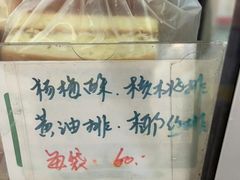 杨梅酥．核桃排
黄油排．椰丝排
每袋．60.-